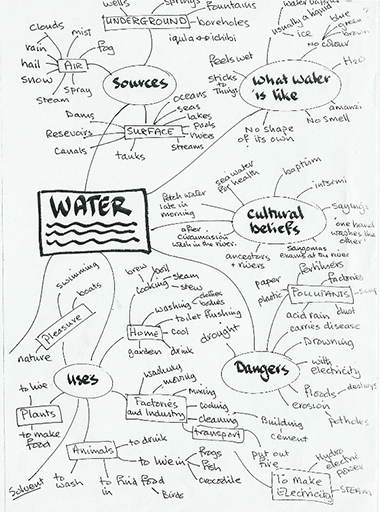 wells
springs
fountains
UNDERGROUND
boreholes
iqula ⇔ ichibi
Clouds
mist
rain
fog
hail
AIR
snow
Spray
steam
Sources
oceans
seas
lakes
pools
rivers
streams
SURFACE
Dams
Resevoirs
Canals
tanks
usually a liquid
ice
blue
green
brown
no colour
H2O
Feels wet
Sticks to
Things
What water
is like
amanzi
No smell
No shape
of its own
WATER
Cultural
beliefs
sea water
for health
baptism
Fetch water
late in
morning
sayings
one hand
washes the
other
after
circumcision
wash in the river.
ancestors
+ rivers
Sangomas
exams at the river
Dangers
fertilisers
factories
paper
plastic
POLLUTANTS
dust
acid rain
carries disease
Drowning
drought
with
electricity
floods
destroys
erosion
potholes
uses
swimming
boats
Pleasure
nature
brew
boil
cooking
steam
stew
washing
clothes
bodies
toilet flushing
Home
cool
garden
drink
washing
moving
mixing
Factories
and Industry
cooling
cleaning
transport
Building
cement
put out
fire
To Make
Electricity
Hydro
electric
power
STEAM
to live
Plants
to make
food
Solvent
Animals
to drink
to live in
frogs
fish
crocodile
to
wash
to find food
in
Birds